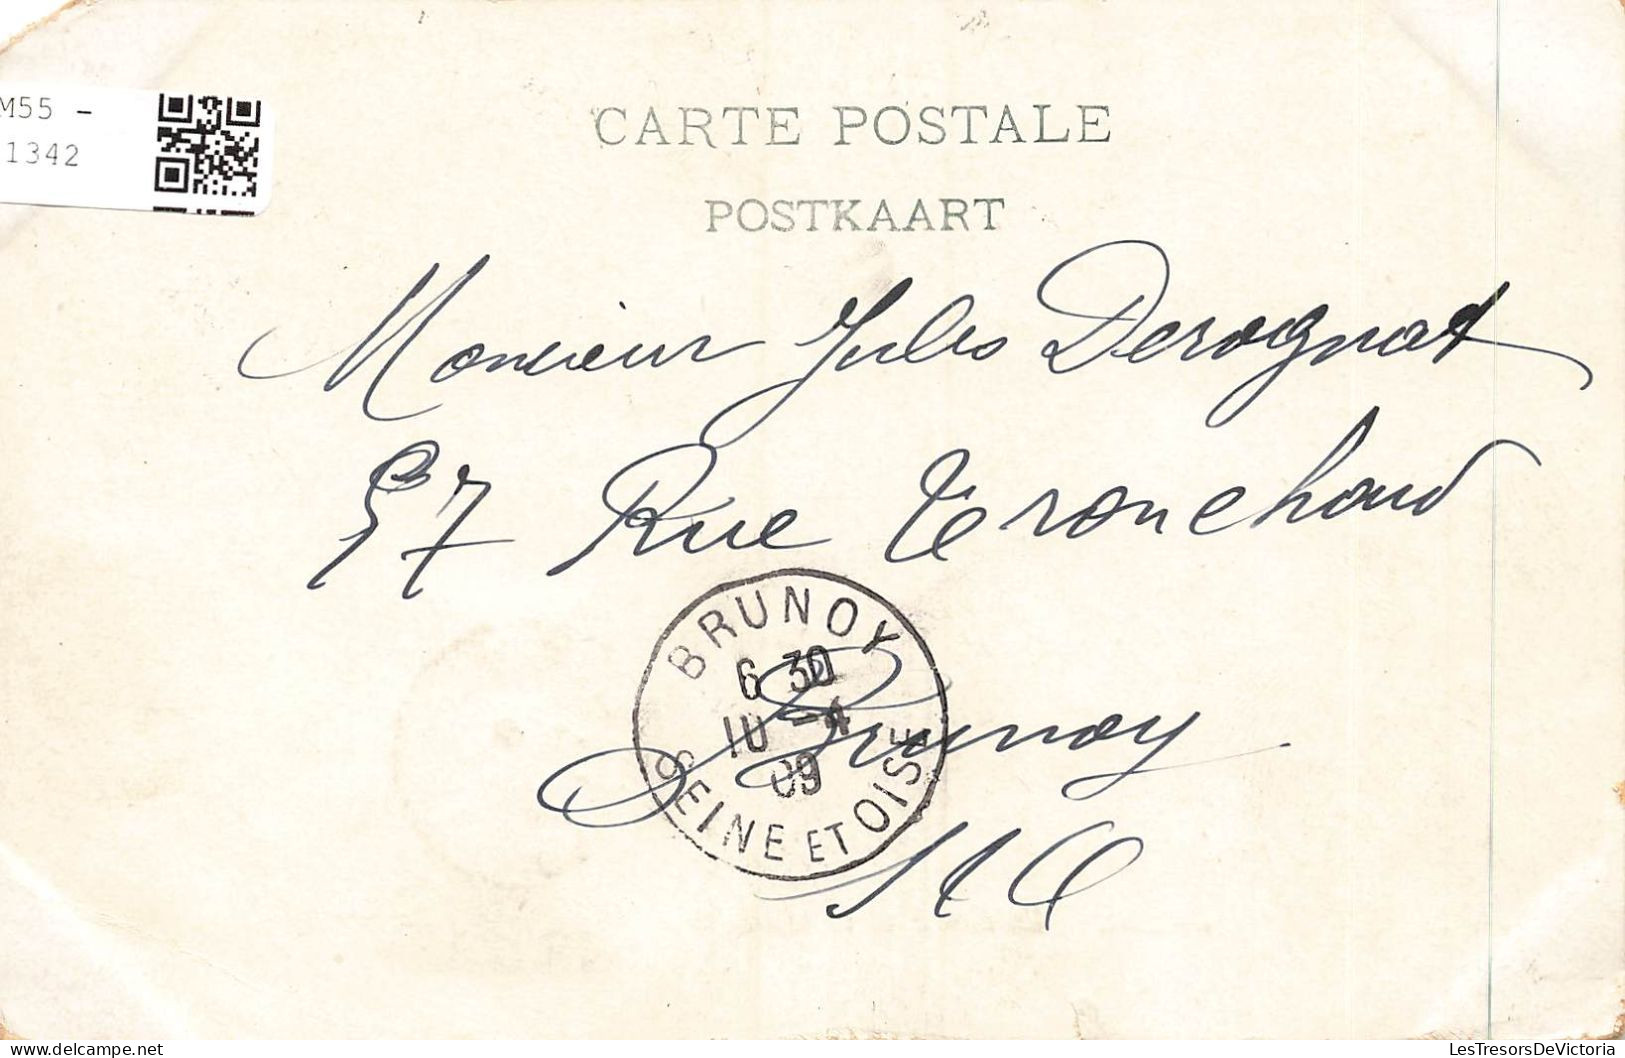 M55 -
1342
CARTE POSTALE
POSTKAART
Monsieur Jules Derognat
57 Rue Tronchard
BRUNOY
6 30
10 -4
09
SEINE ET OISE
Brunoy
S et O
LesTresorsDeVictoria